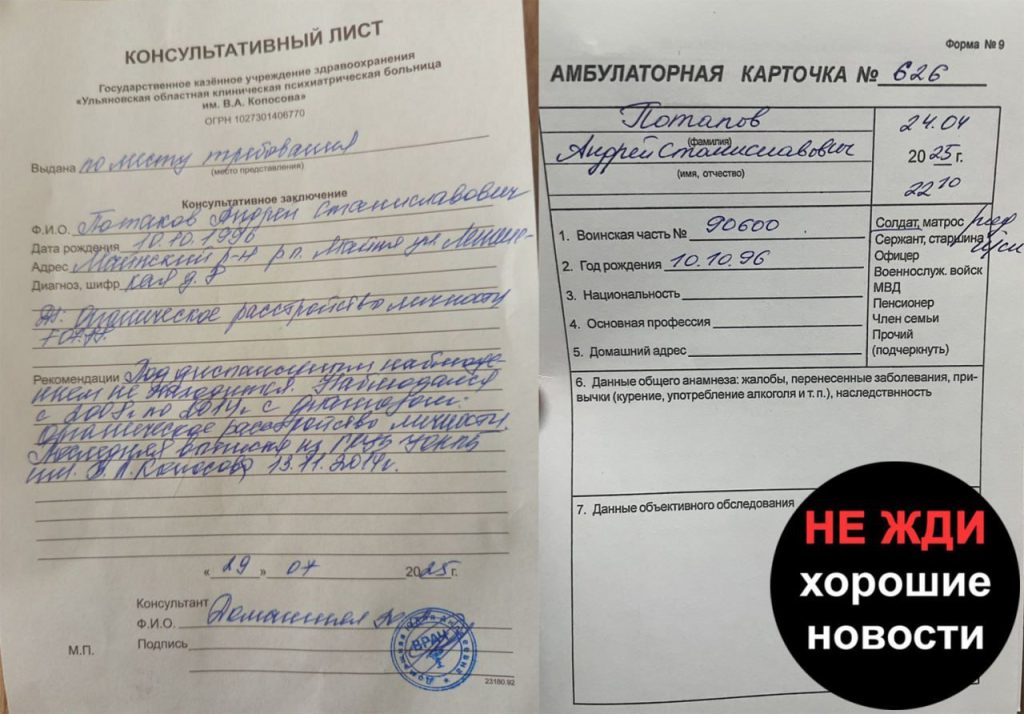 КОНСУЛЬТАТИВНЫЙ ЛИСТ
Государственное казённое учреждение здравоохранения
«Ульяновская областная клиническая психиатрическая больница
им. В.А. Копосова»
ОГРН 1027301406770
Выдана по месту требования
(место представления)
Консультативное заключение
Ф.И.О. Потапов Андрей Станиславович
Дата рождения 10.10.1996
Адрес Майнский р-н р.п. Майна ул Ленинс-
Диагноз, шифр кая д.
Ds: Органическое расстройство личности
F07.
Рекомендации Под диспансерным наблюде-
нием не находится. Наблюдался
с 200 по 2014г. с диагнозом:
Органическое расстройство личности.
Последняя выписка из ГКУЗ УОКПБ
им. В.А. Копосова 13.11.2014г.
« 29 » 07 2025 г.
Консультант
Ф.И.О.
Подпись
М.П.
ВРАЧ
23180.92
Форма № 9
АМБУЛАТОРНАЯ КАРТОЧКА № 626
Потапов
(фамилия)
Андрей Станиславович
(имя, отчество)
24.04
2025 г.
22 10
1. Воинская часть № 90600
2. Год рождения 10.10.96
3. Национальность
4. Основная профессия
5. Домашний адрес
Солдат, матрос ряд
Сержант, старшина
Офицер
Военнослуж. войск
МВД
Пенсионер
Член семьи
Прочий
(подчеркнуть)
6. Данные общего анамнеза: жалобы, перенесенные заболевания, при-
вычки (курение, употребление алкоголя и т. п.), наследственность
7. Данные объективного обследования
НЕ ЖДИ
хорошие
новости